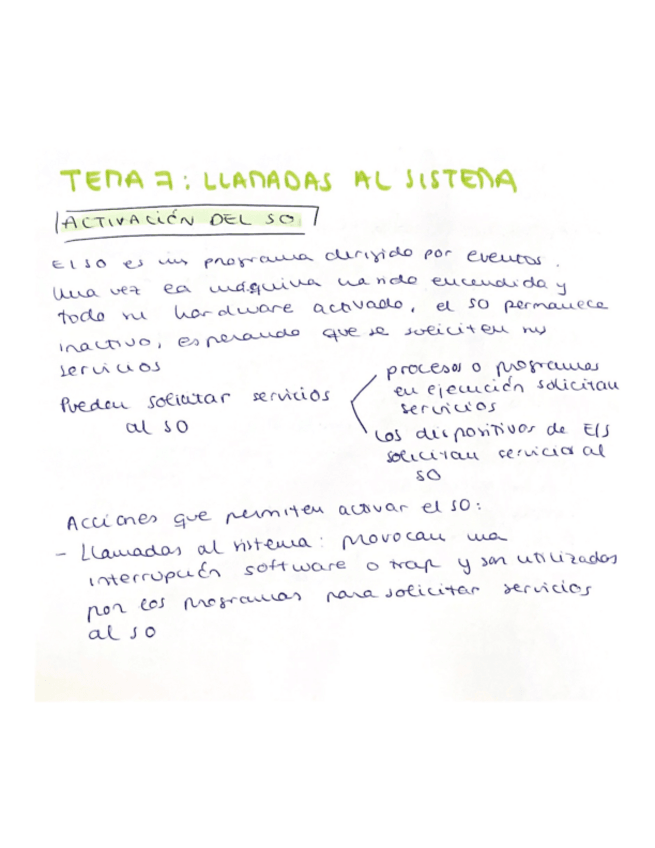 TEMA 7: LLAMADAS AL SISTEMA
ACTIVACIÓN DEL SO
El SO es un programa dirigido por eventos.
Una vez la máquina ha sido encendida y
todo su hardware activado, el SO permanece
inactivo, esperando que se soliciten sus
servicios
Pueden solicitar servicios
al SO
procesos o programas
en ejecución solicitan
servicios
Los dispositivos de E/S
solicitan servicios al
SO
Acciones que permiten activar el SO:
- Llamadas al sistema: provocan una
interrupción software o trap y son utilizados
por los programas para solicitar servicios
al SO